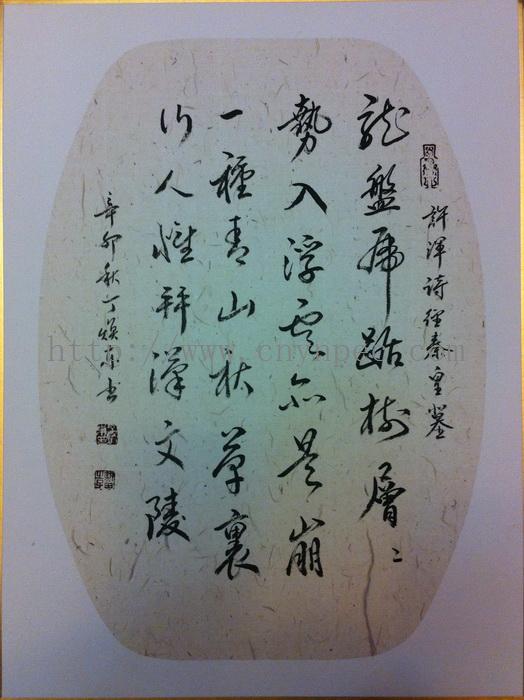 許渾詩經秦皇墓
龍盤虎踞樹層〻
勢入浮雲亦是崩
一種青山秋草裏
行人惟拜漢文陵
辛卯秋丁煥東書